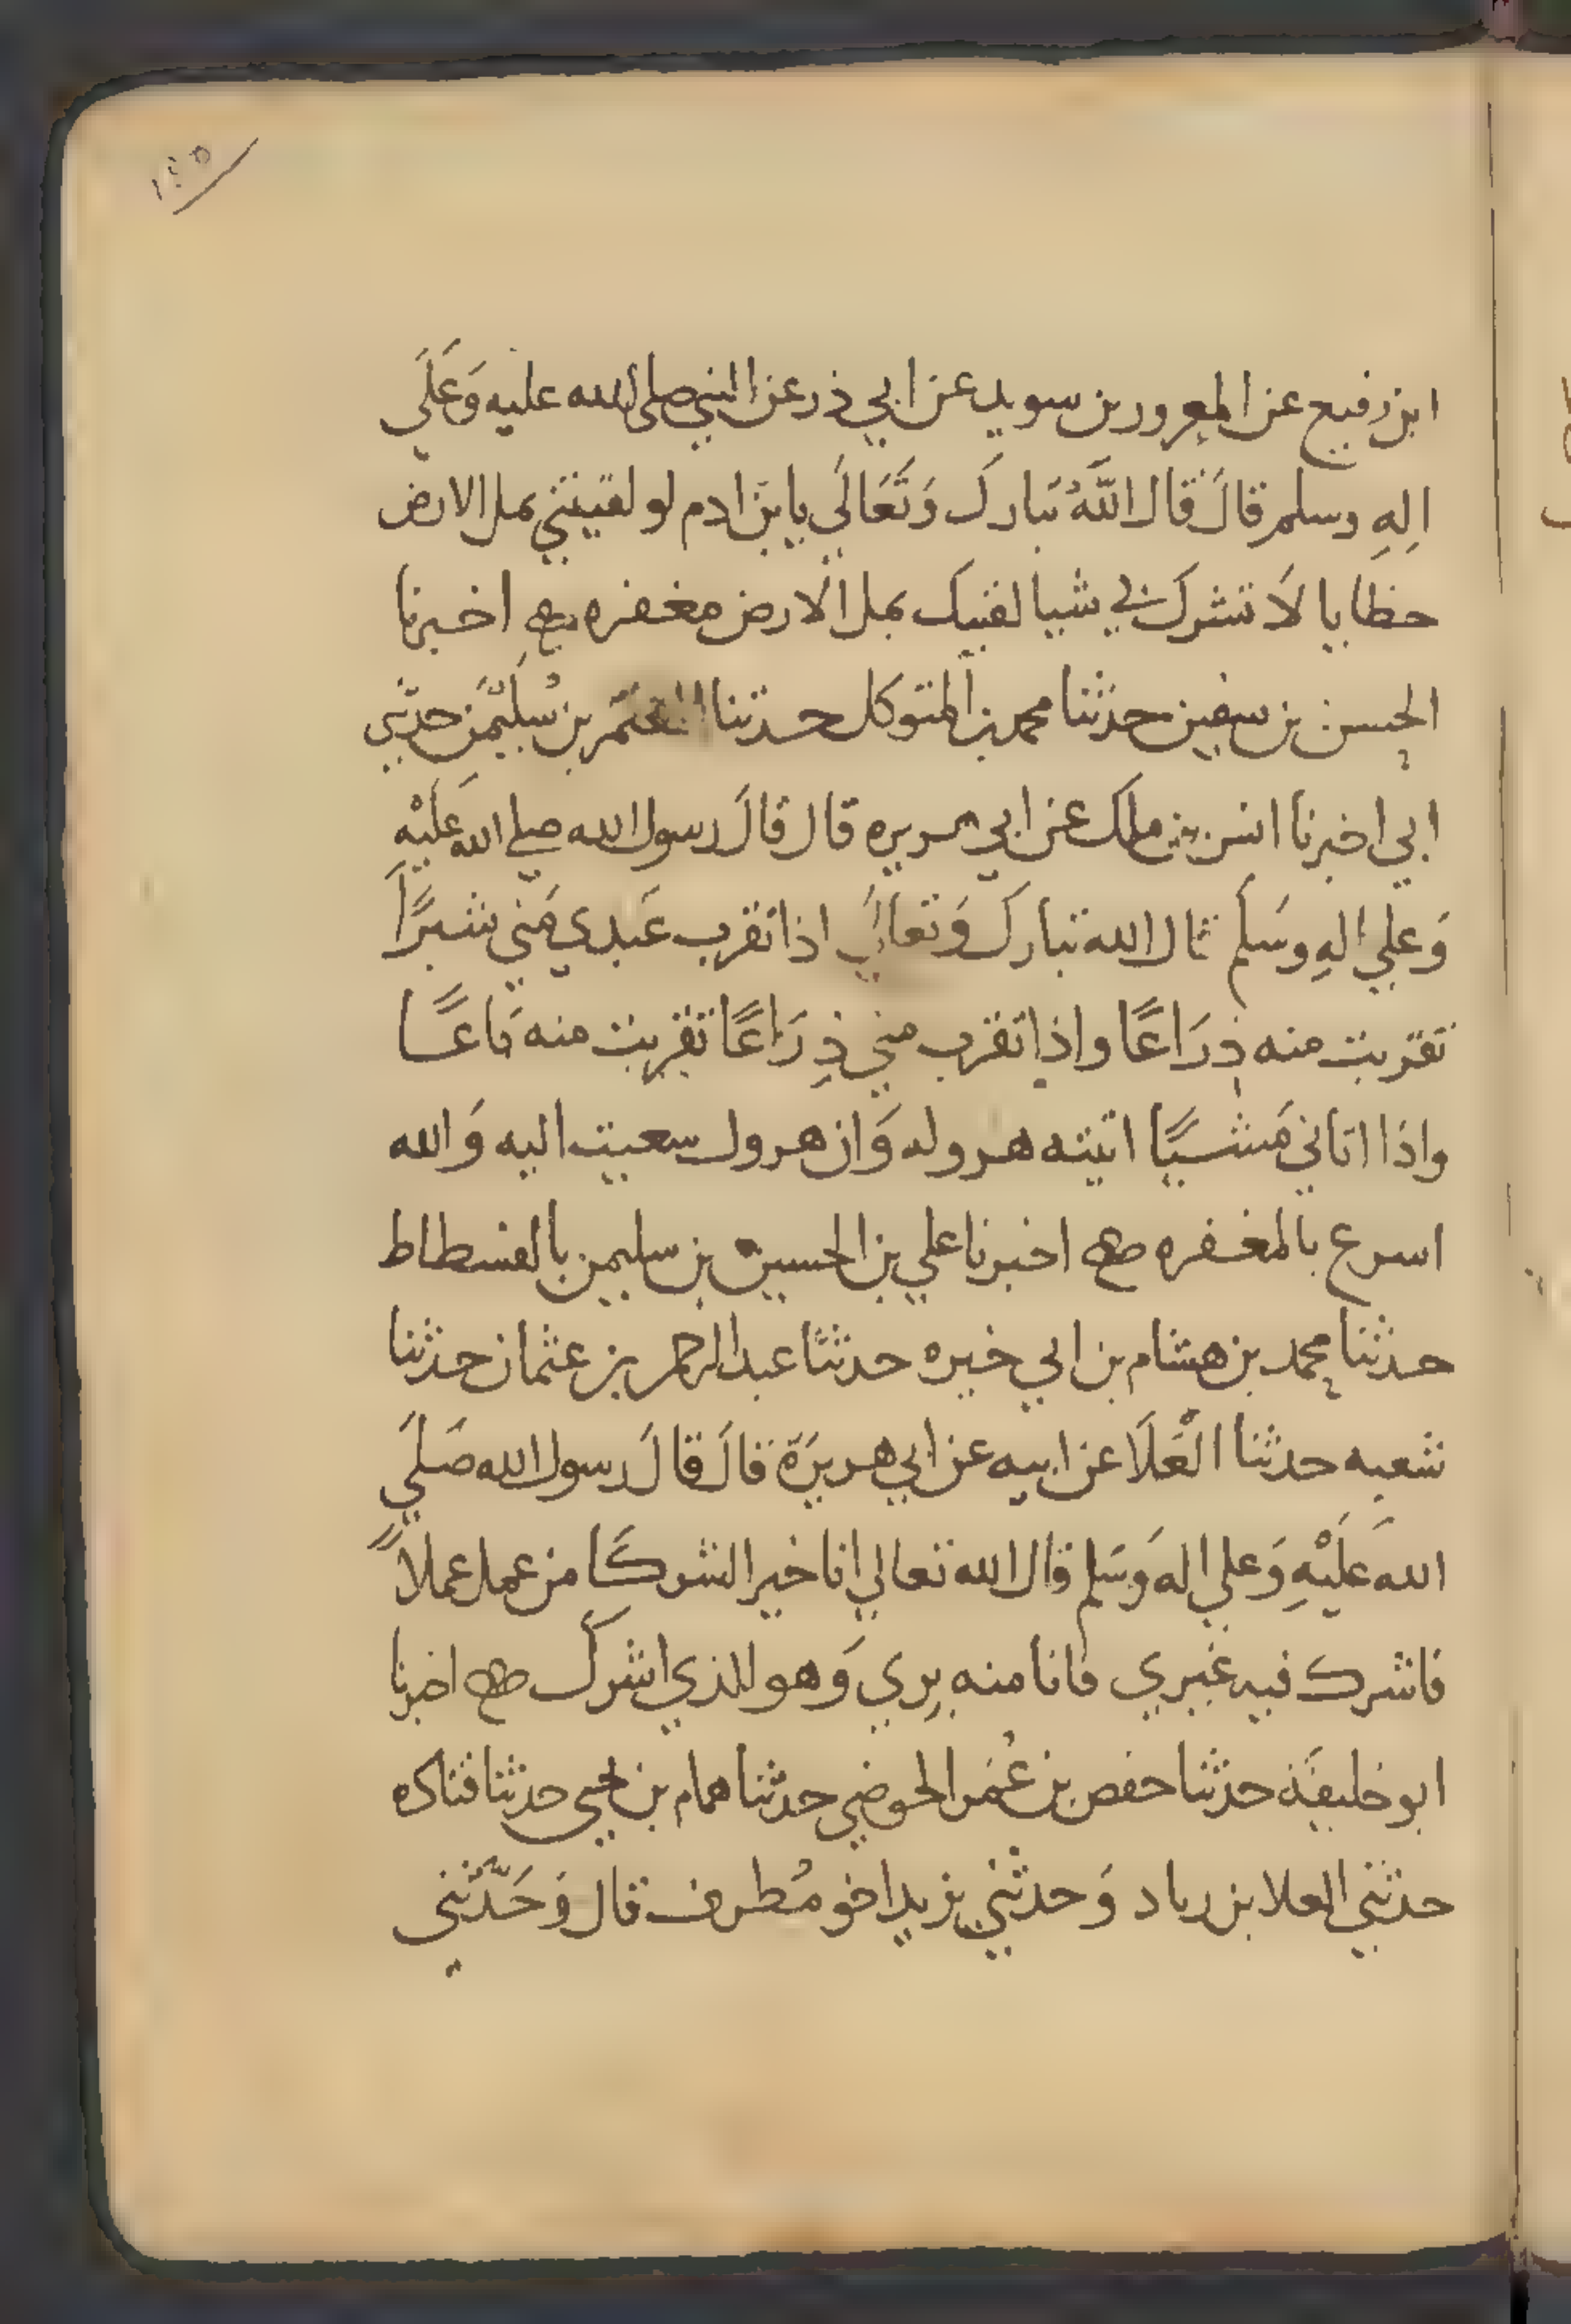 ١٤٥
ابن رفيع عن المعرور بن سويد عن ابي ذر عن النبي صلى الله عليه وَعَلَي
اِلهِ وسلم قالَ قال اللَّهُ تبارك وَتَعَالَي يا بنَ ادم لو لقيتني بمل الارض
خطايا لَا تشرك بي شيا لقيتك بمل الَارض مغفره صح اخبرنا
الحسن بن سفين حدثنا محمد بن المتوكل حدثنا المعتَمر بن سُلَيْمَن حدثني
ابي اخبرنا انس بن ملك عن ابي هريره قال قالَ رسول الله صلي الله عَلَيْهِ
وَعلي الهِ وسَلم قال الله تبارك وَتعالَي اذا تقرب عَبدي مِني شبرًا
تقربت منه ذِرَاعًا واذا تقرب مني ذِرَاعًا تقربت منه بَاعًا
واذا اتاني مَشيًا اتيته هروله وَان هرول سعيت اليه وَالله
اسرع بالمغفره صح اخبرنا علي بن الحسين بن سليمن بالفسطاط
حدثنا محمد بن هشام بن ابي خيره حدثنا عبد الرحمن بن عثمان حدثنا
شعبه حدثنا الْعَلَا عن ابيه عن ابي هريرَة قالَ قالَ رسول الله صَلَي
الله عَلَيْهِ وَعلي اله وَسَلم قال الله تعالي انا خير الشركَا من عمل عملاً
فاشرك فيه غيري فانا منه بِري وَهو للذي اشرك صح اخبرنا
ابو خليفَة حدثنا حفص بن عُمَر الحوضي حدثنا همام بن يحيي حدثنا قتاده
حدثني العلا بن زياد وَحدثني يزيد اخو مُطرف قال وَحَدَّثني